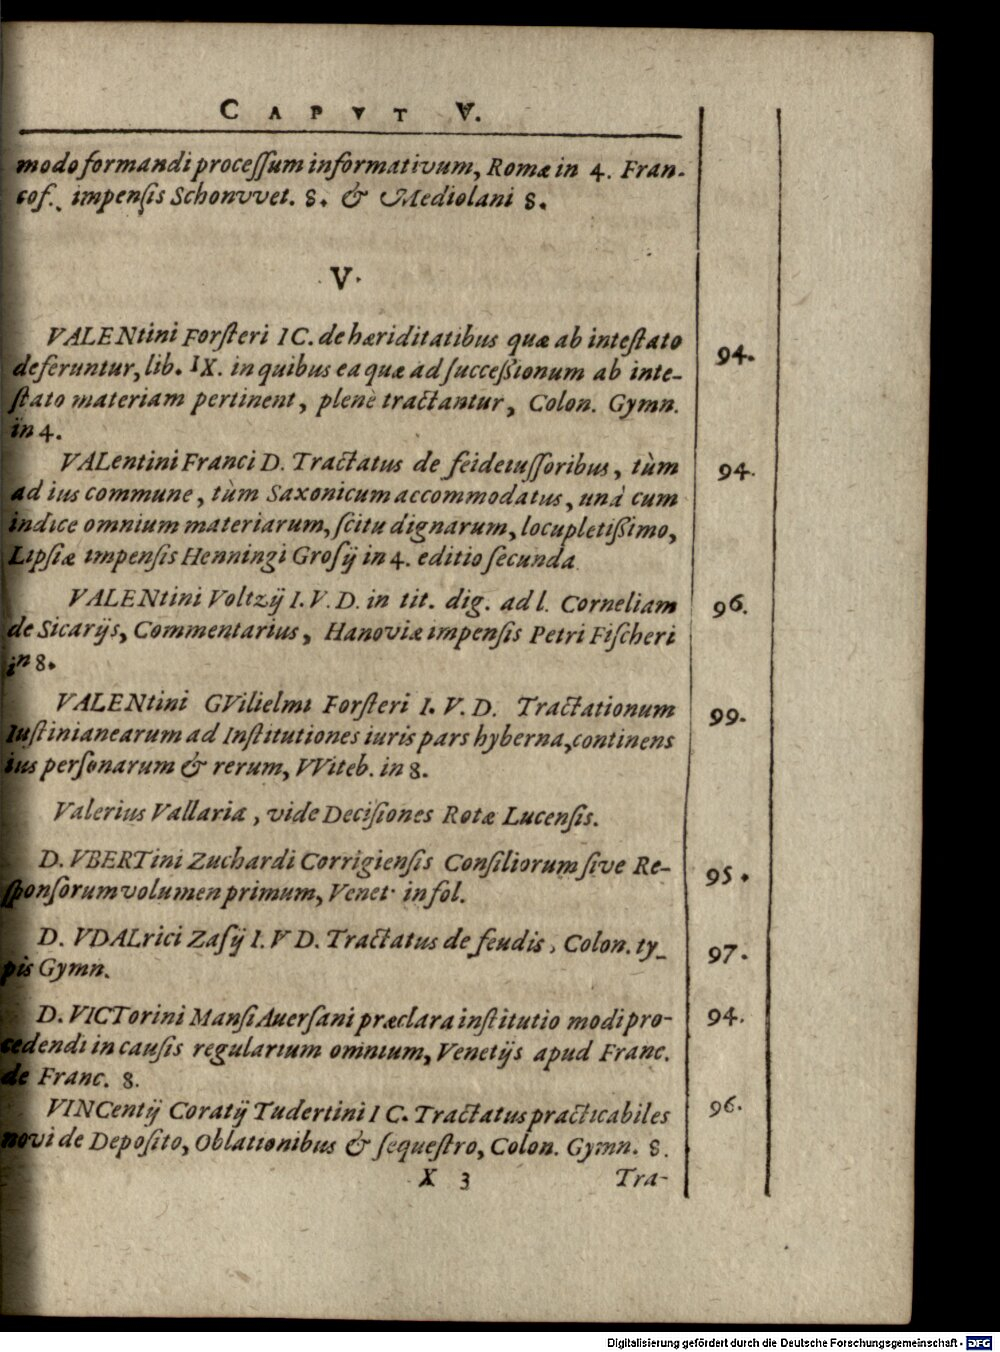 CAPVT V.
modo formandi processum informativum, Romæ in 4. Fran-
cof. impensis Schonvvet. 8. & Mediolani 8.
V.
VALENtini Forsteri IC. de hæriditatibus quæ ab intestato
deferuntur, lib. IX. in quibus ea quæ ad successionum ab inte-
stato materiam pertinent, plenè tractantur, Colon. Gymn.
in 4.
94.
VALentini Franci D. Tractatus de feidetussoribus, tùm
ad ius commune, tùm Saxonicum accommodatus, unà cum
indice omnium materiarum, scitu dignarum, locupletissimo,
Lipsiæ impensis Henningi Grosij in 4. editio secunda
94.
VALENtini Voltzij I. V. D. in tit. dig. ad l. Corneliam
de Sicarijs, Commentarius, Hanoviæ impensis Petri Fischeri
in 8.
96.
VALENtini GVilielmi Forsteri I. V. D. Tractationum
Iustinianearum ad Institutiones iuris pars hyberna, continens
ius personarum & rerum, VViteb. in 8.
99.
Valerius Vallaria, vide Decisiones Rotæ Lucensis.
D. VBERTini Zuchardi Corrigiensis Consiliorum sive Re-
sponsorum volumen primum, Venet. in fol.
95.
D. VDALrici Zasij I. V D. Tractatus de feudis, Colon. ty-
pis Gymn.
97.
D. VICTorini Mansi Auersani præclara institutio modi pro-
cedendi in causis regularium omnium, Venetijs apud Franc.
de Franc. 8.
94.
VINCentij Coratij Tudertini IC. Tractatus practicabiles
novi de Deposito, Oblationibus & sequestro, Colon. Gymn. 8.
96.
X 3 Tra-
Digitalisierung gefördert durch die Deutsche Forschungsgemeinschaft - DFG